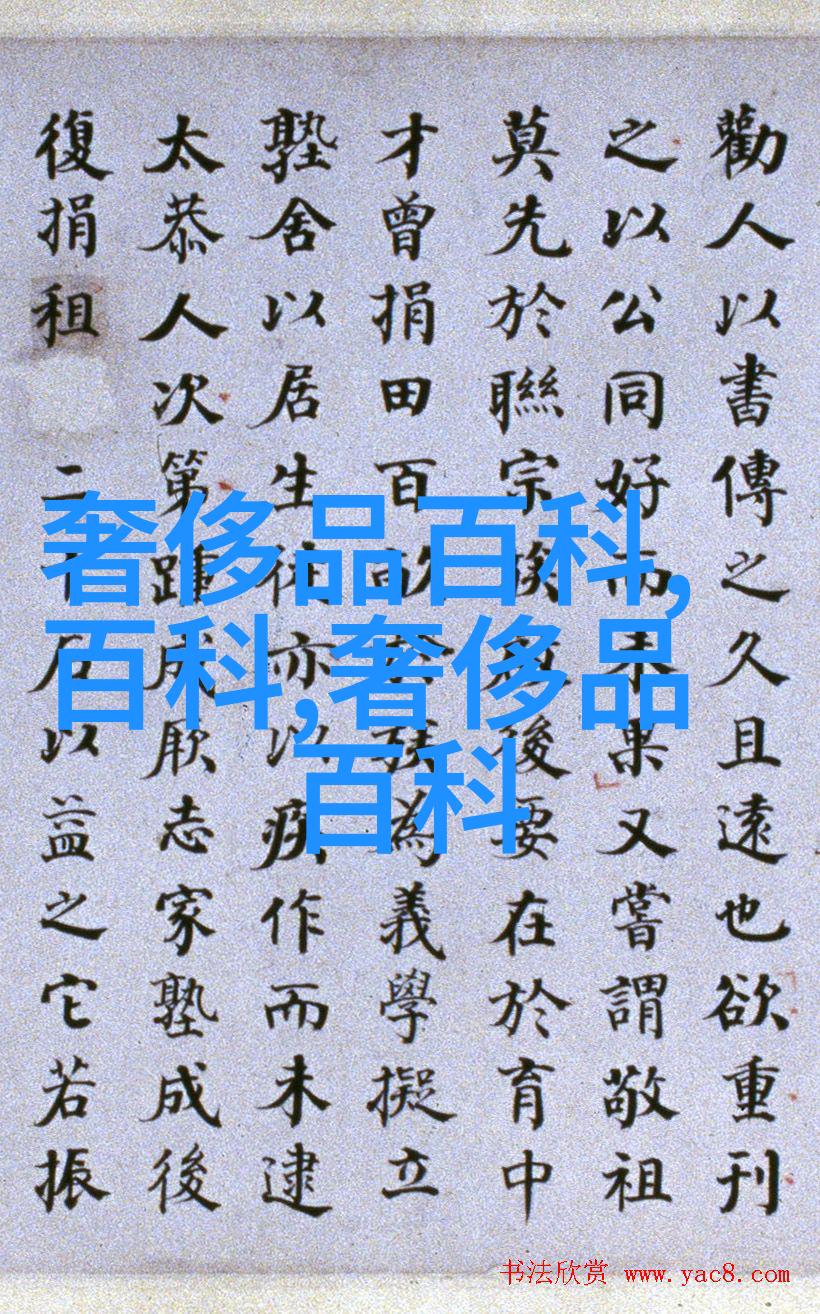 勸人以書傳之久且遠也欲重刊
之以公同好而未果又嘗謂敬祖
莫先於聯宗族後要在於育中
才曾捐田百畝為義學擬立
塾舍以居生徒亦以疾作而未逮
太恭人次第踵成厥志家塾成後
復捐租二千石以益之它若振
奢侈品百科,
百科,奢侈品
百科
书法欣赏 www.yac8.com